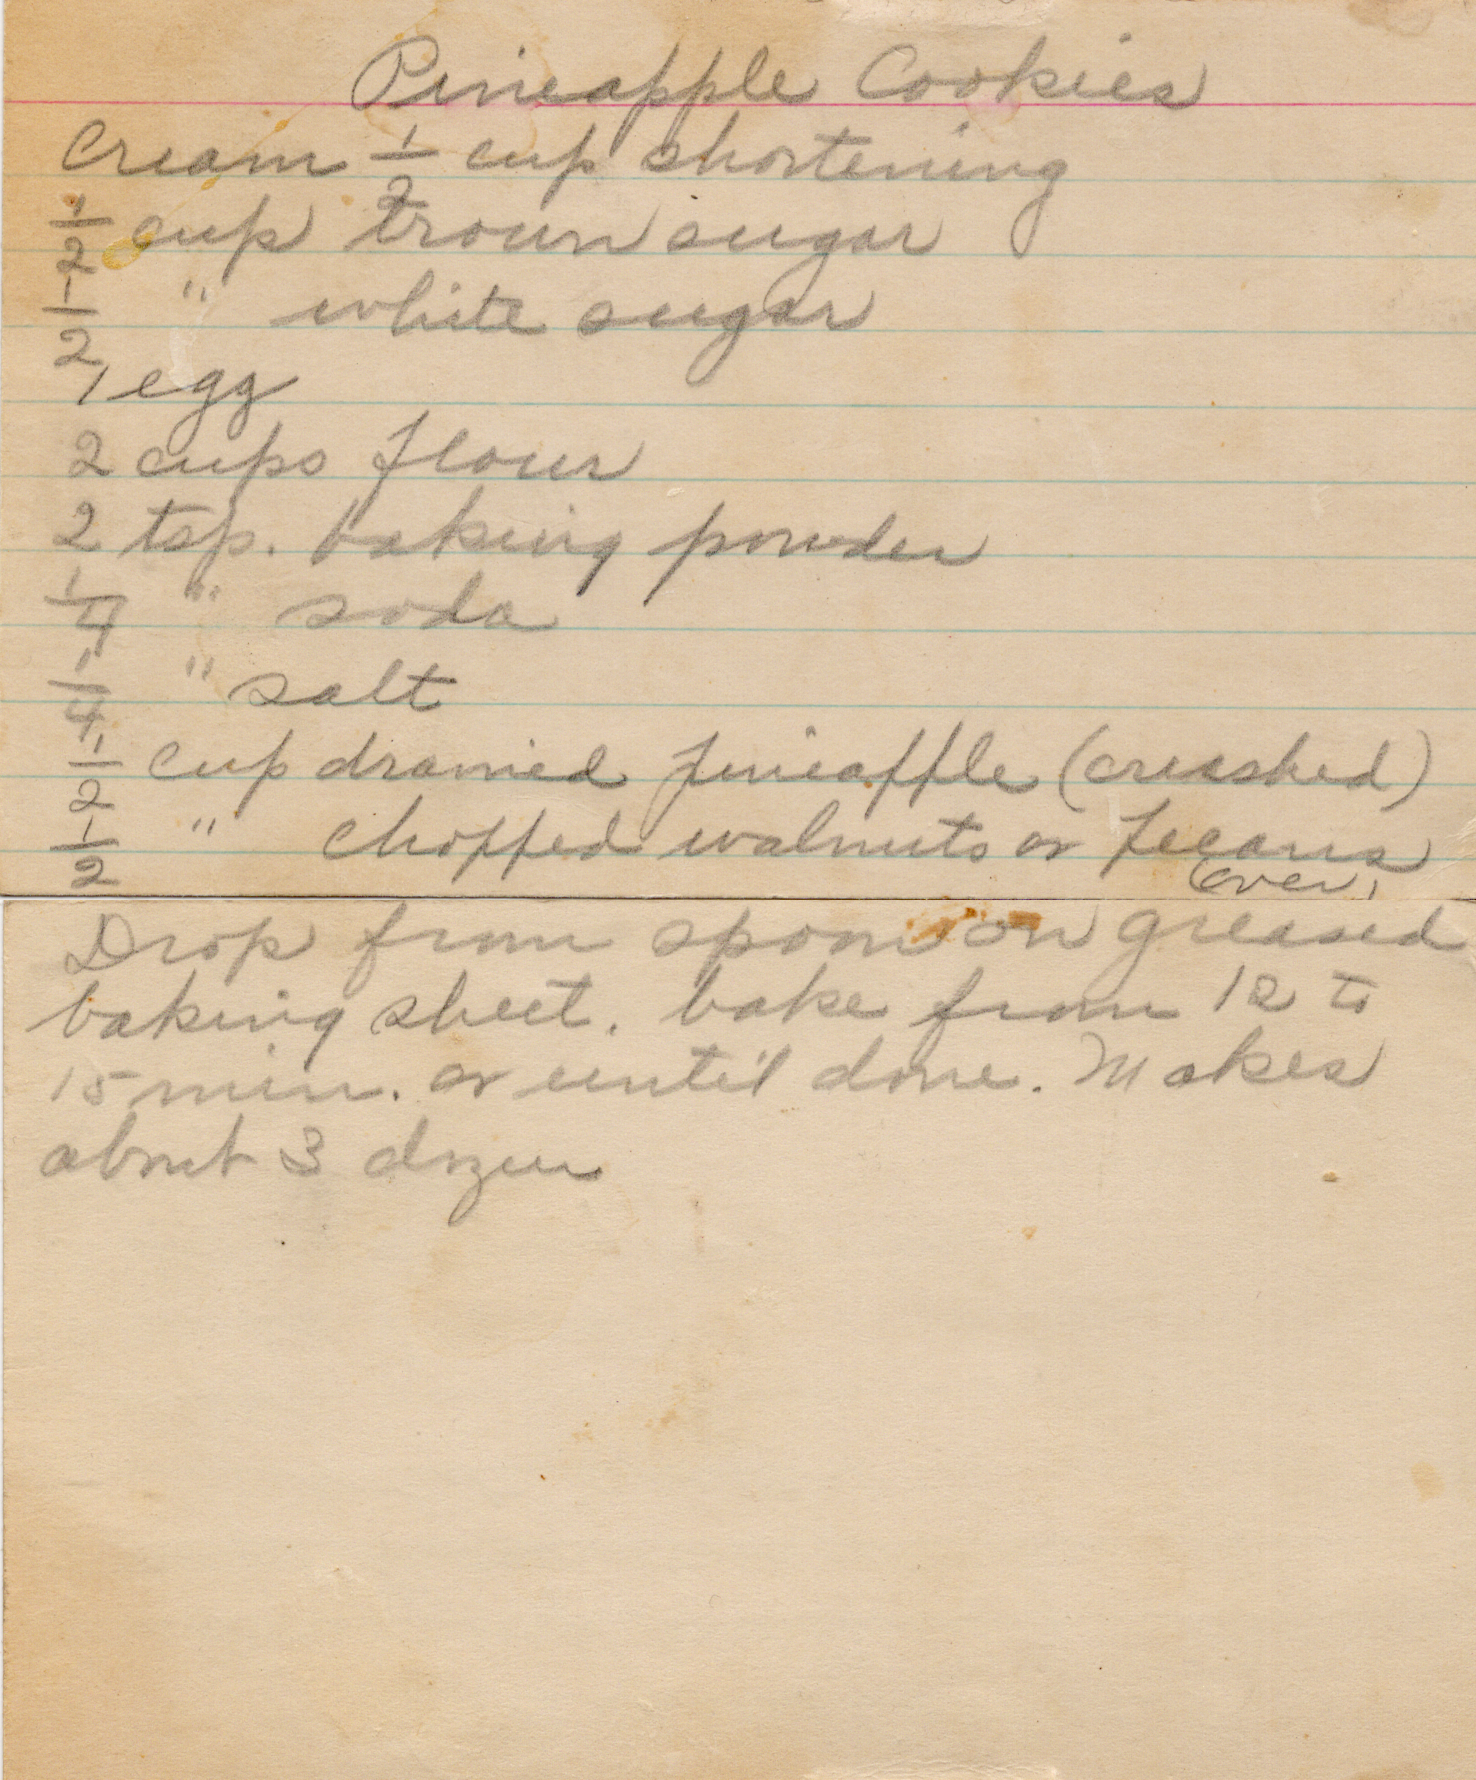 Pineapple Cookies
Cream 1/2 cup shortening
1/2 cup brown sugar
1/2 " white sugar
1 egg
2 cups flour
2 tsp. baking powder
1/4 " soda
1/4 " salt
1/2 cup drained pineapple (crushed)
1/2 " chopped walnuts or pecans
(over)
Drop from spoon on greased
baking sheet. bake from 12 to
15 min. or until done. Makes
about 3 dozen